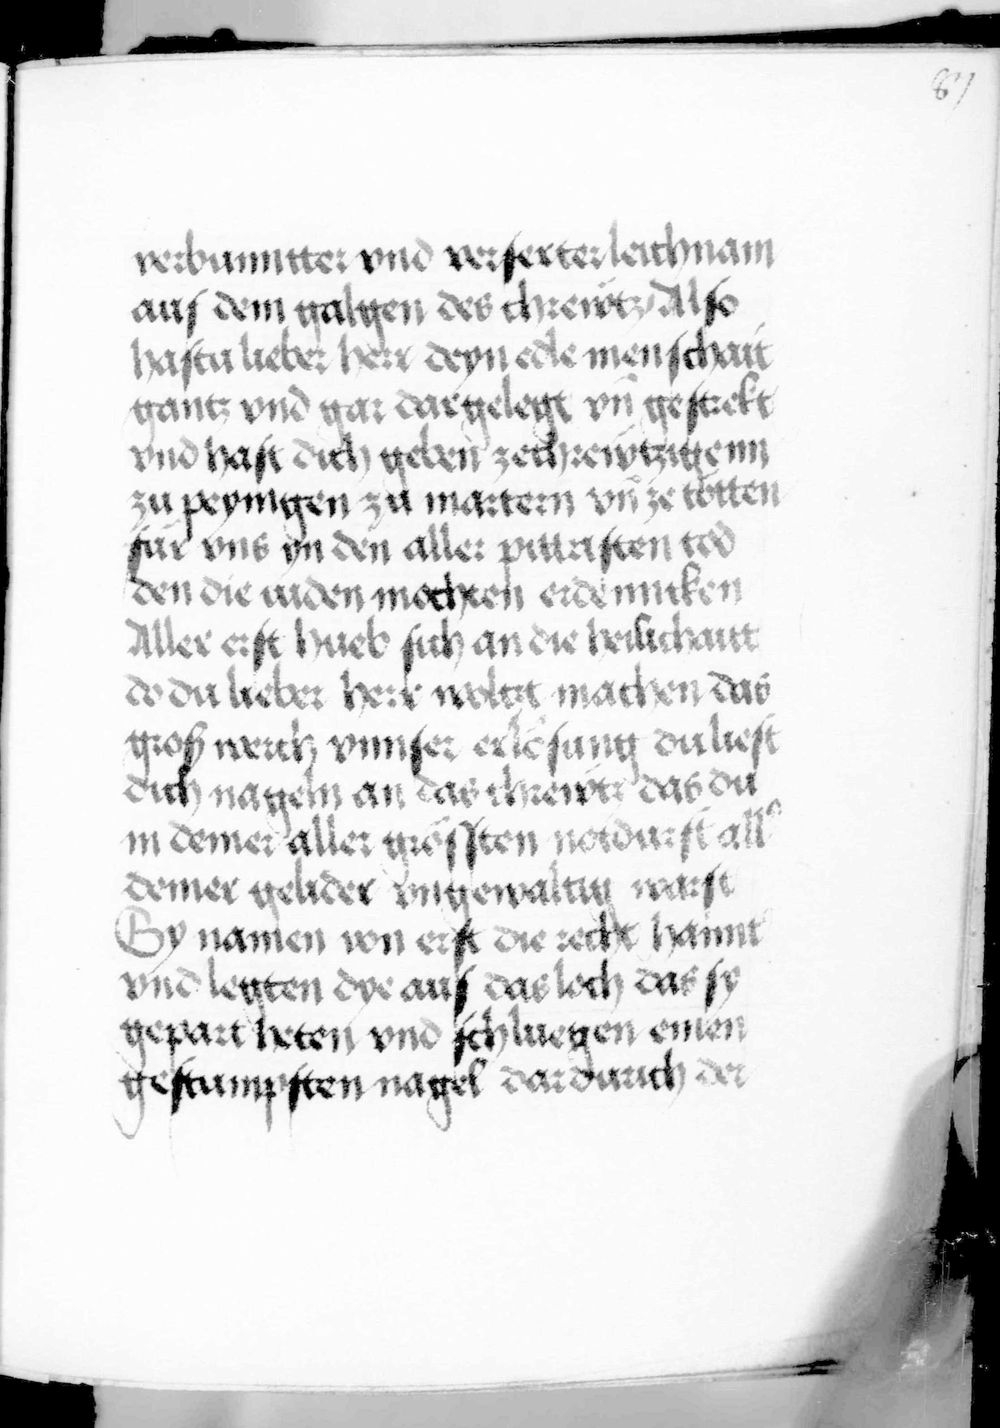 87
verbunntter vnd verserter leichnam
auf dem galgen des chrewtz / Also
hastu lieber herr deyn edle menschait
gantz vnd gar dargelegt vn̄ gestrekt
vnd hast dich geben ze chrewtzigenn
zu peynigen zu martern vn̄ ze tötten
für vns yn den aller pittristen tod
den die iuden mochten erdenncken
Aller erst hueb sich an die
do du lieber herr wolst machen das
groß werch vnnser erlösung du liest
dich nageln an das chrewtz das du
in deiner aller grössten notdurft all
deiner gelider vngewaltig warst
Sy namen von erst die recht hannt
vnd legten dye auf das loch das sy
gepart heten vnd schluegen einen
gestumpften nagel dardurich der